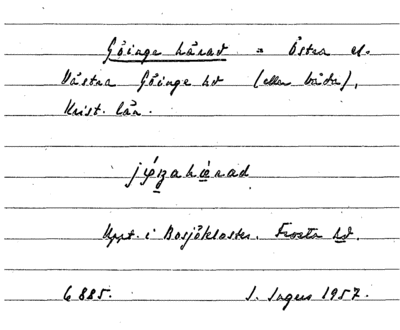 Göinge härad = Östra el.
Västra Göinge hd (eller båda),
Krist. län.
Uppt. i Bosjökloster. Frosta hd.
6885. S. Ingers 1957.